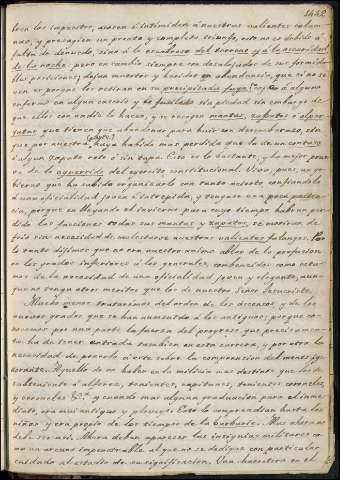 1442
lven los impostor, acosan é intimidan á nuestras valientes colum-
nas, y presagian un pronto y completo triunfo, esto no es debido á
falta de denuedo, sino á lo escabroso del terreno y á la oscuridad
de la noche; pero en cambio siempre son desalojados de sus formida-
bles posiciones, dejan muertos y heridos en abundancia, que si no se
ven es porque los retiran en su precipitada fuga.
enfermo en algun caserío y fusilarlo sin piedad sin embargo de
que ellos con nadie lo hacen, y se recogen mantas, zapatos
que tienen que abandonar para huir con desembarazo, sin
que por nuestra haya habido mas perdida que la de un contuso
ó algun zapato roto ó sin tapa. Esto es lo bastante, y la mejor prue-
va de la aguerrido del ejército constitucional. Viva, pues, un go-
bierno que ha sabido organizarlo con tanto acierto, confiandolo
á una oficialidad joven é intrepida, y tengase una poca pacien-
cia, porque en llegando el invierno para cuyo tiempo habran per-
dido los facciosos todas sus mantas y zapatos, se moriran de
frio sin necesidad de molestarse nuestras valientes falanges. Por
lo tanto dijimos que no era nuestro animo hablar de la profusion
en los grados inferiores á los generales, convencidos como esta-
mos de la necesidad de una oficialidad joven y elegante, aun-
que no tenga otros meritos que los de nuestro Señor Jesucristo.
Mucho menos trataremos del orden de los ascensos, y de los
nuevos grados que se han aumentado á los antiguos; porque co-
nocemos por una parte la fuerza del progreso que precisamen-
te ha de tener entrada tambien en esta carrera, y por otra la
necesidad de ponerlo á este sobre la comprension del menos ig-
norante. Aquello de no haber en la milicia mas destinos que los de
subteniente ó alferez, tenientes, capitanes, tenientes coroneles,
y coroneles &c.ª y cuando mas alguna graduacion para el inme-
diato, era mui antiguo y plausible. Esto lo comprendian hasta los
niños y era propio de los tiempos de la barbarie. Mas ahora no
debe ser así. Ahora deben aparecer las insignias militares co-
mo un arcano impenetrable al que no se dedique con particular
cuidado al estudio de su significacion. Una charretera en el